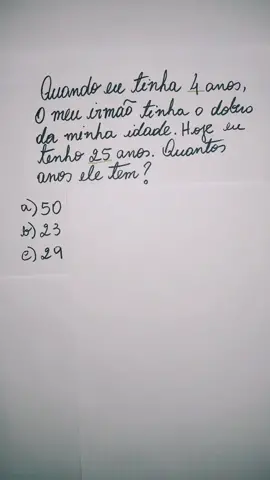 Quando eu tinha 4 anos,
O meu irmão tinha o dobro
da minha idade. Hoje eu
tenho 25 anos. Quantos
anos ele tem?
a) 50
b) 23
c) 29